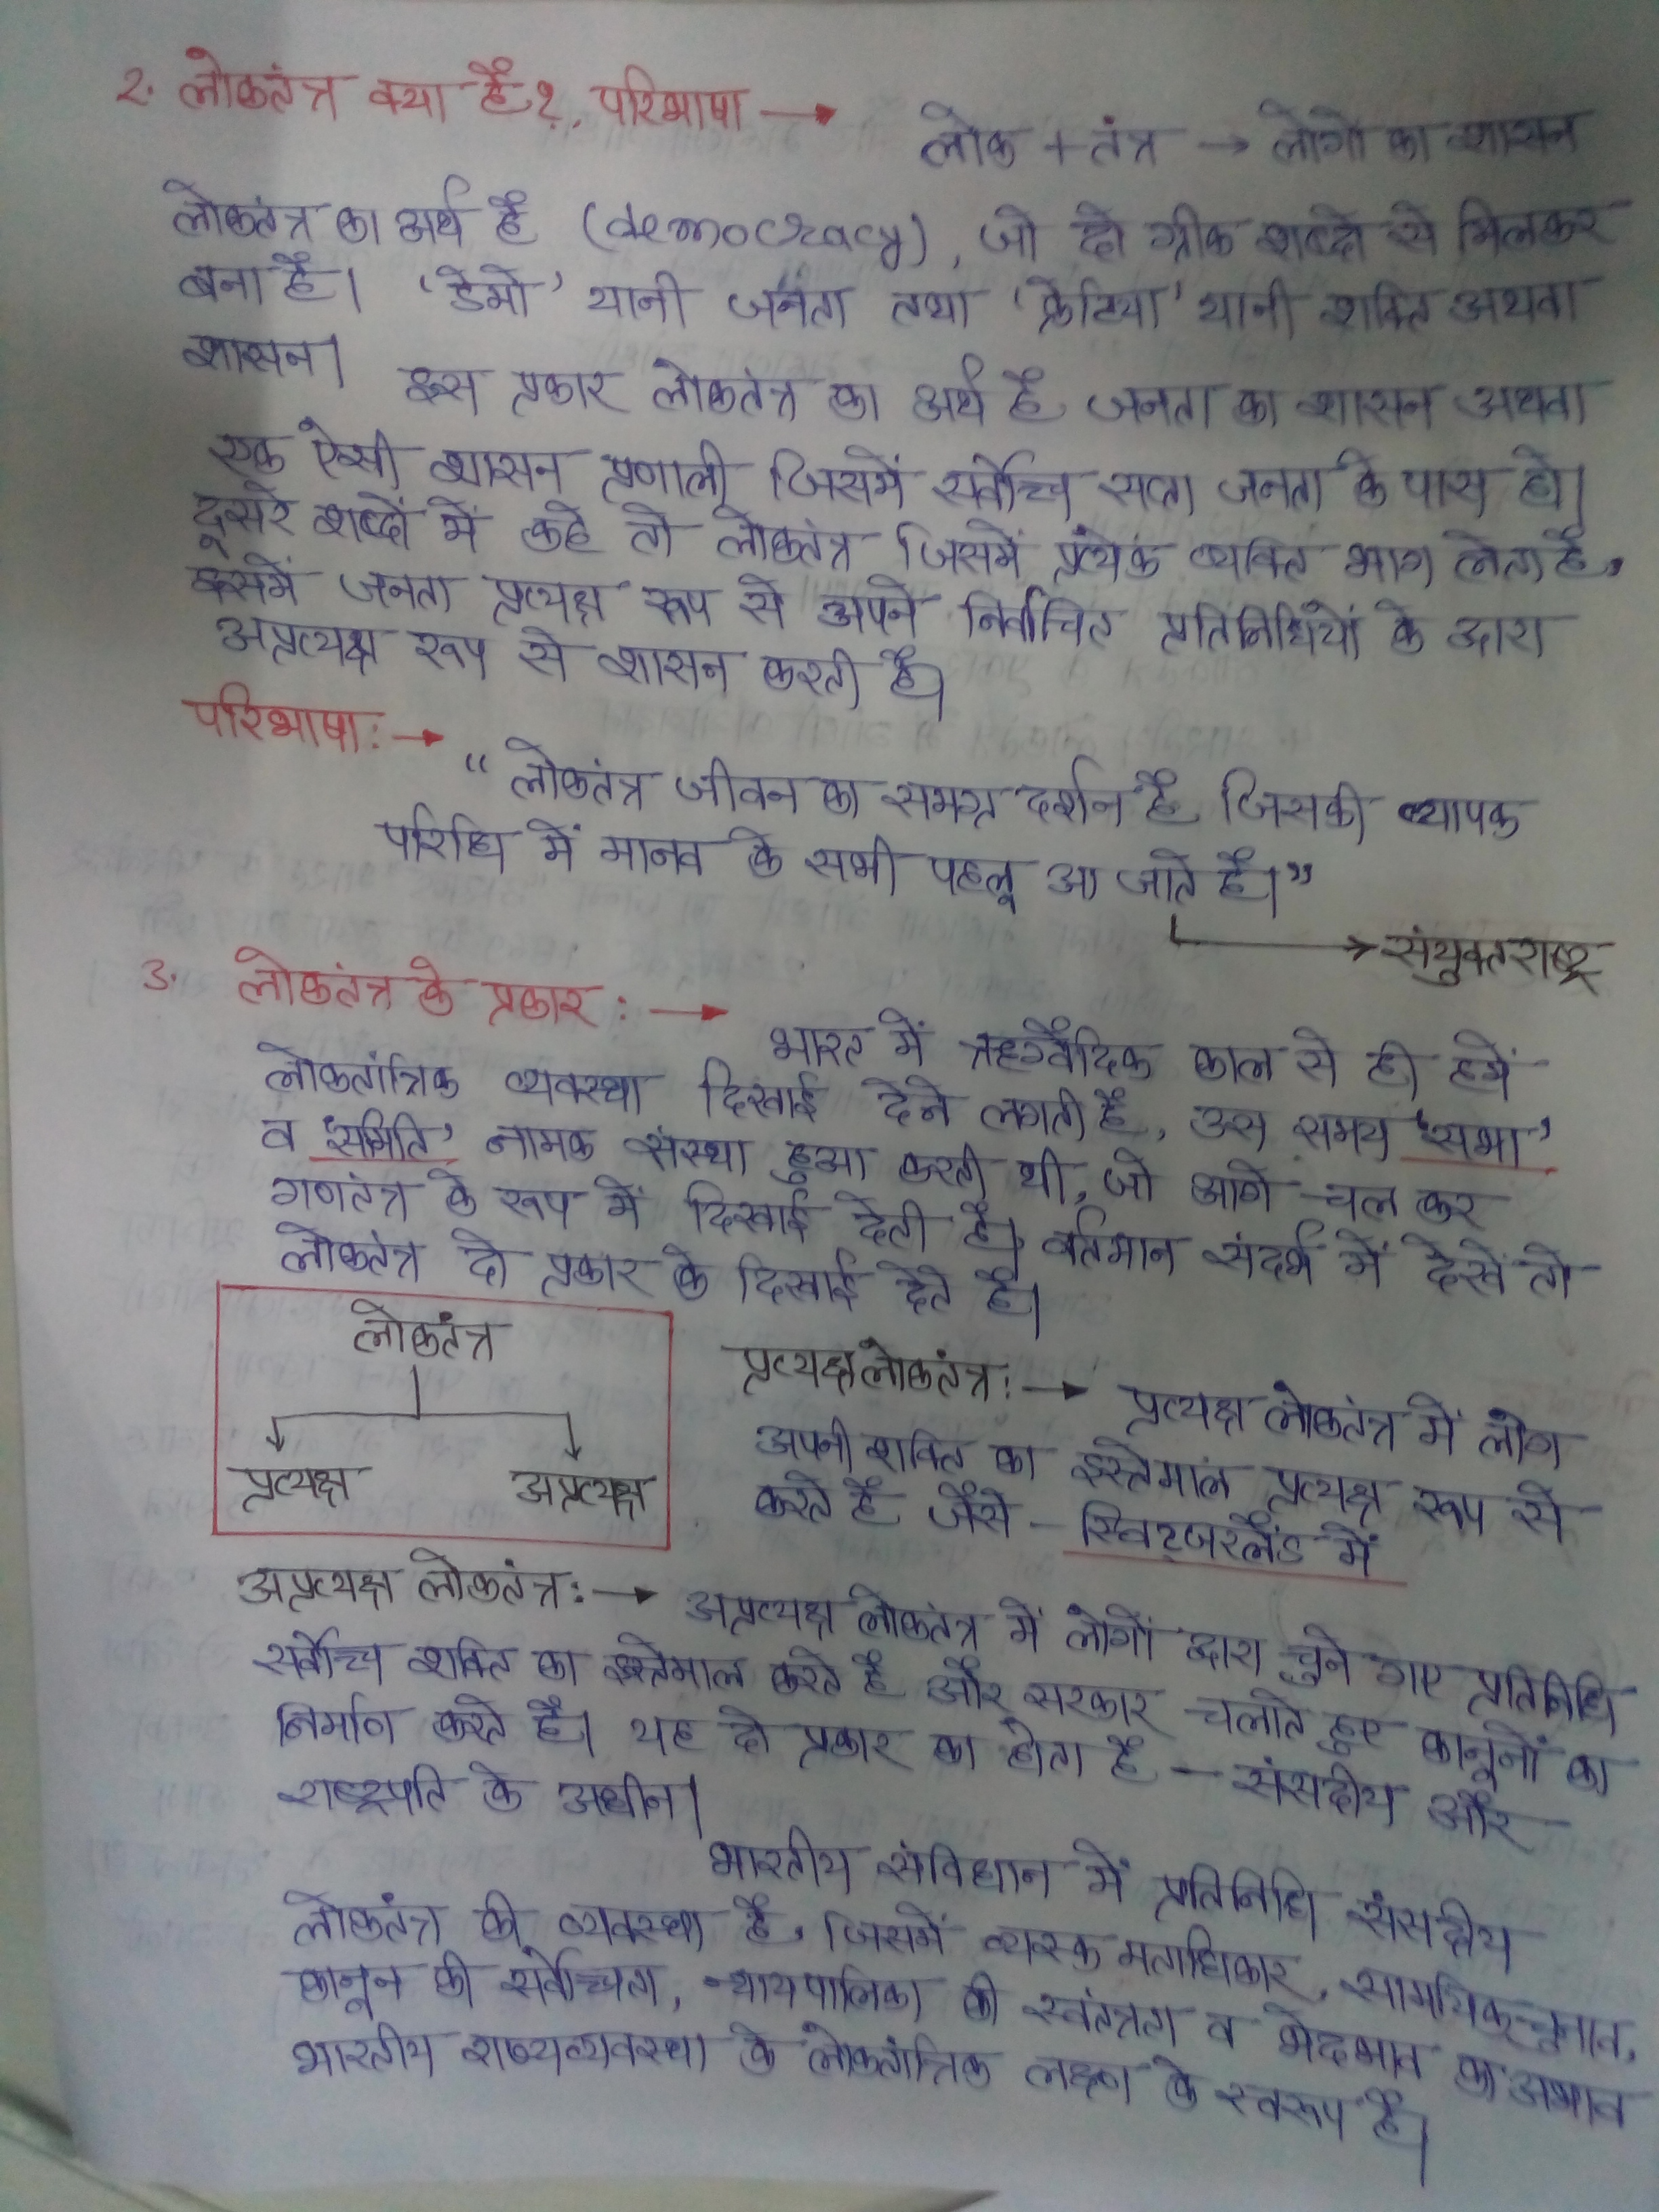 2. लोकतंत्र क्या है?, परिभाषा →
लोक + तंत्र → लोगों का शासन
लोकतंत्र का अर्थ है (democracy), जो दो ग्रीक शब्दों से मिलकर
बना है। 'डेमो' यानी जनता तथा 'क्रेटिया' यानी शक्ति अथवा
शासन।
इस प्रकार लोकतंत्र का अर्थ है जनता का शासन अथवा
एक ऐसी शासन प्रणाली जिसमें सर्वोच्च सत्ता जनता के पास हो।
दूसरे शब्दों में कहे तो लोकतंत्र जिसमें प्रत्येक व्यक्ति भाग लेता है,
इसमें जनता प्रत्यक्ष रूप से अपने निर्वाचित प्रतिनिधियों के द्वारा
अप्रत्यक्ष रूप से शासन करती है।
परिभाषा:→
"लोकतंत्र जीवन का समग्र दर्शन है जिसकी व्यापक
परिधि में मानव के सभी पहलू आ जाते है।"
→ संयुक्त राष्ट्र
3. लोकतंत्र के प्रकार :→
भारत में ऋग्वैदिक काल से ही हमें
लोकतांत्रिक व्यवस्था दिखाई देने लगती है, उस समय 'सभा'
व 'समिति' नामक संस्था हुआ करती थी, जो आगे चल कर
गणतंत्र के रूप में दिखाई देती है। वर्तमान संदर्भ में देखें तो
लोकतंत्र दो प्रकार के दिखाई देते है।
लोकतंत्र
प्रत्यक्ष अप्रत्यक्ष
प्रत्यक्ष लोकतंत्र:→ प्रत्यक्ष लोकतंत्र में लोग
अपनी शक्ति का इस्तेमाल प्रत्यक्ष रूप से
करते हैं जैसे - स्विट्जरलैंड में
अप्रत्यक्ष लोकतंत्र:→ अप्रत्यक्ष लोकतंत्र में लोगों द्वारा चुने गए प्रतिनिधि
सर्वोच्च शक्ति का इस्तेमाल करते है और सरकार चलाते हुए कानूनों का
निर्माण करते है। यह दो प्रकार का होता है - संसदीय और
राष्ट्रपति के अधीन।
भारतीय संविधान में प्रतिनिधि संसदीय
लोकतंत्र की व्यवस्था है, जिसमें व्यस्क मताधिकार, सामयिक चुनाव,
कानून की सर्वोच्चता, न्यायपालिका की स्वतंत्रता व भेदभाव का अभाव
भारतीय राज्यव्यवस्था के लोकतांत्रिक लक्षण के स्वरूप है।